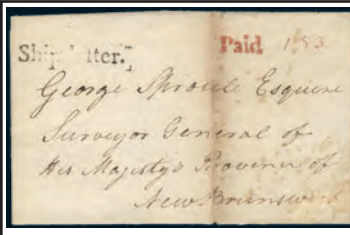 Ship Letter. Paid
George Sproule Esquire
Surveyor General of
His Majestys Province of
New Brunswick